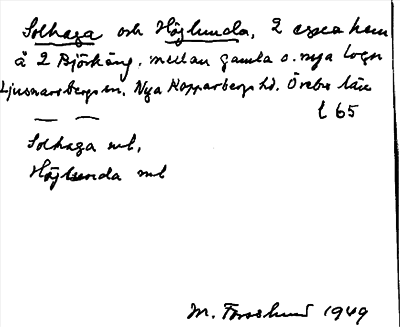 Solhaga och Höglunda, 2 egna hem
å 2 Björkäng. mellan gamla o. nya logn
Ljusnarsbergs sn. Nya Kopparbergs hd. Örebro län
l 65
Solhaga mb,
Höglunda mb
M. Forslund 1949